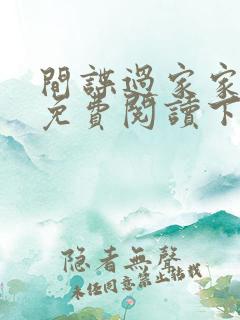 間諜過家家
免費閱讀下
隐者無聲
未経同意禁止轉載